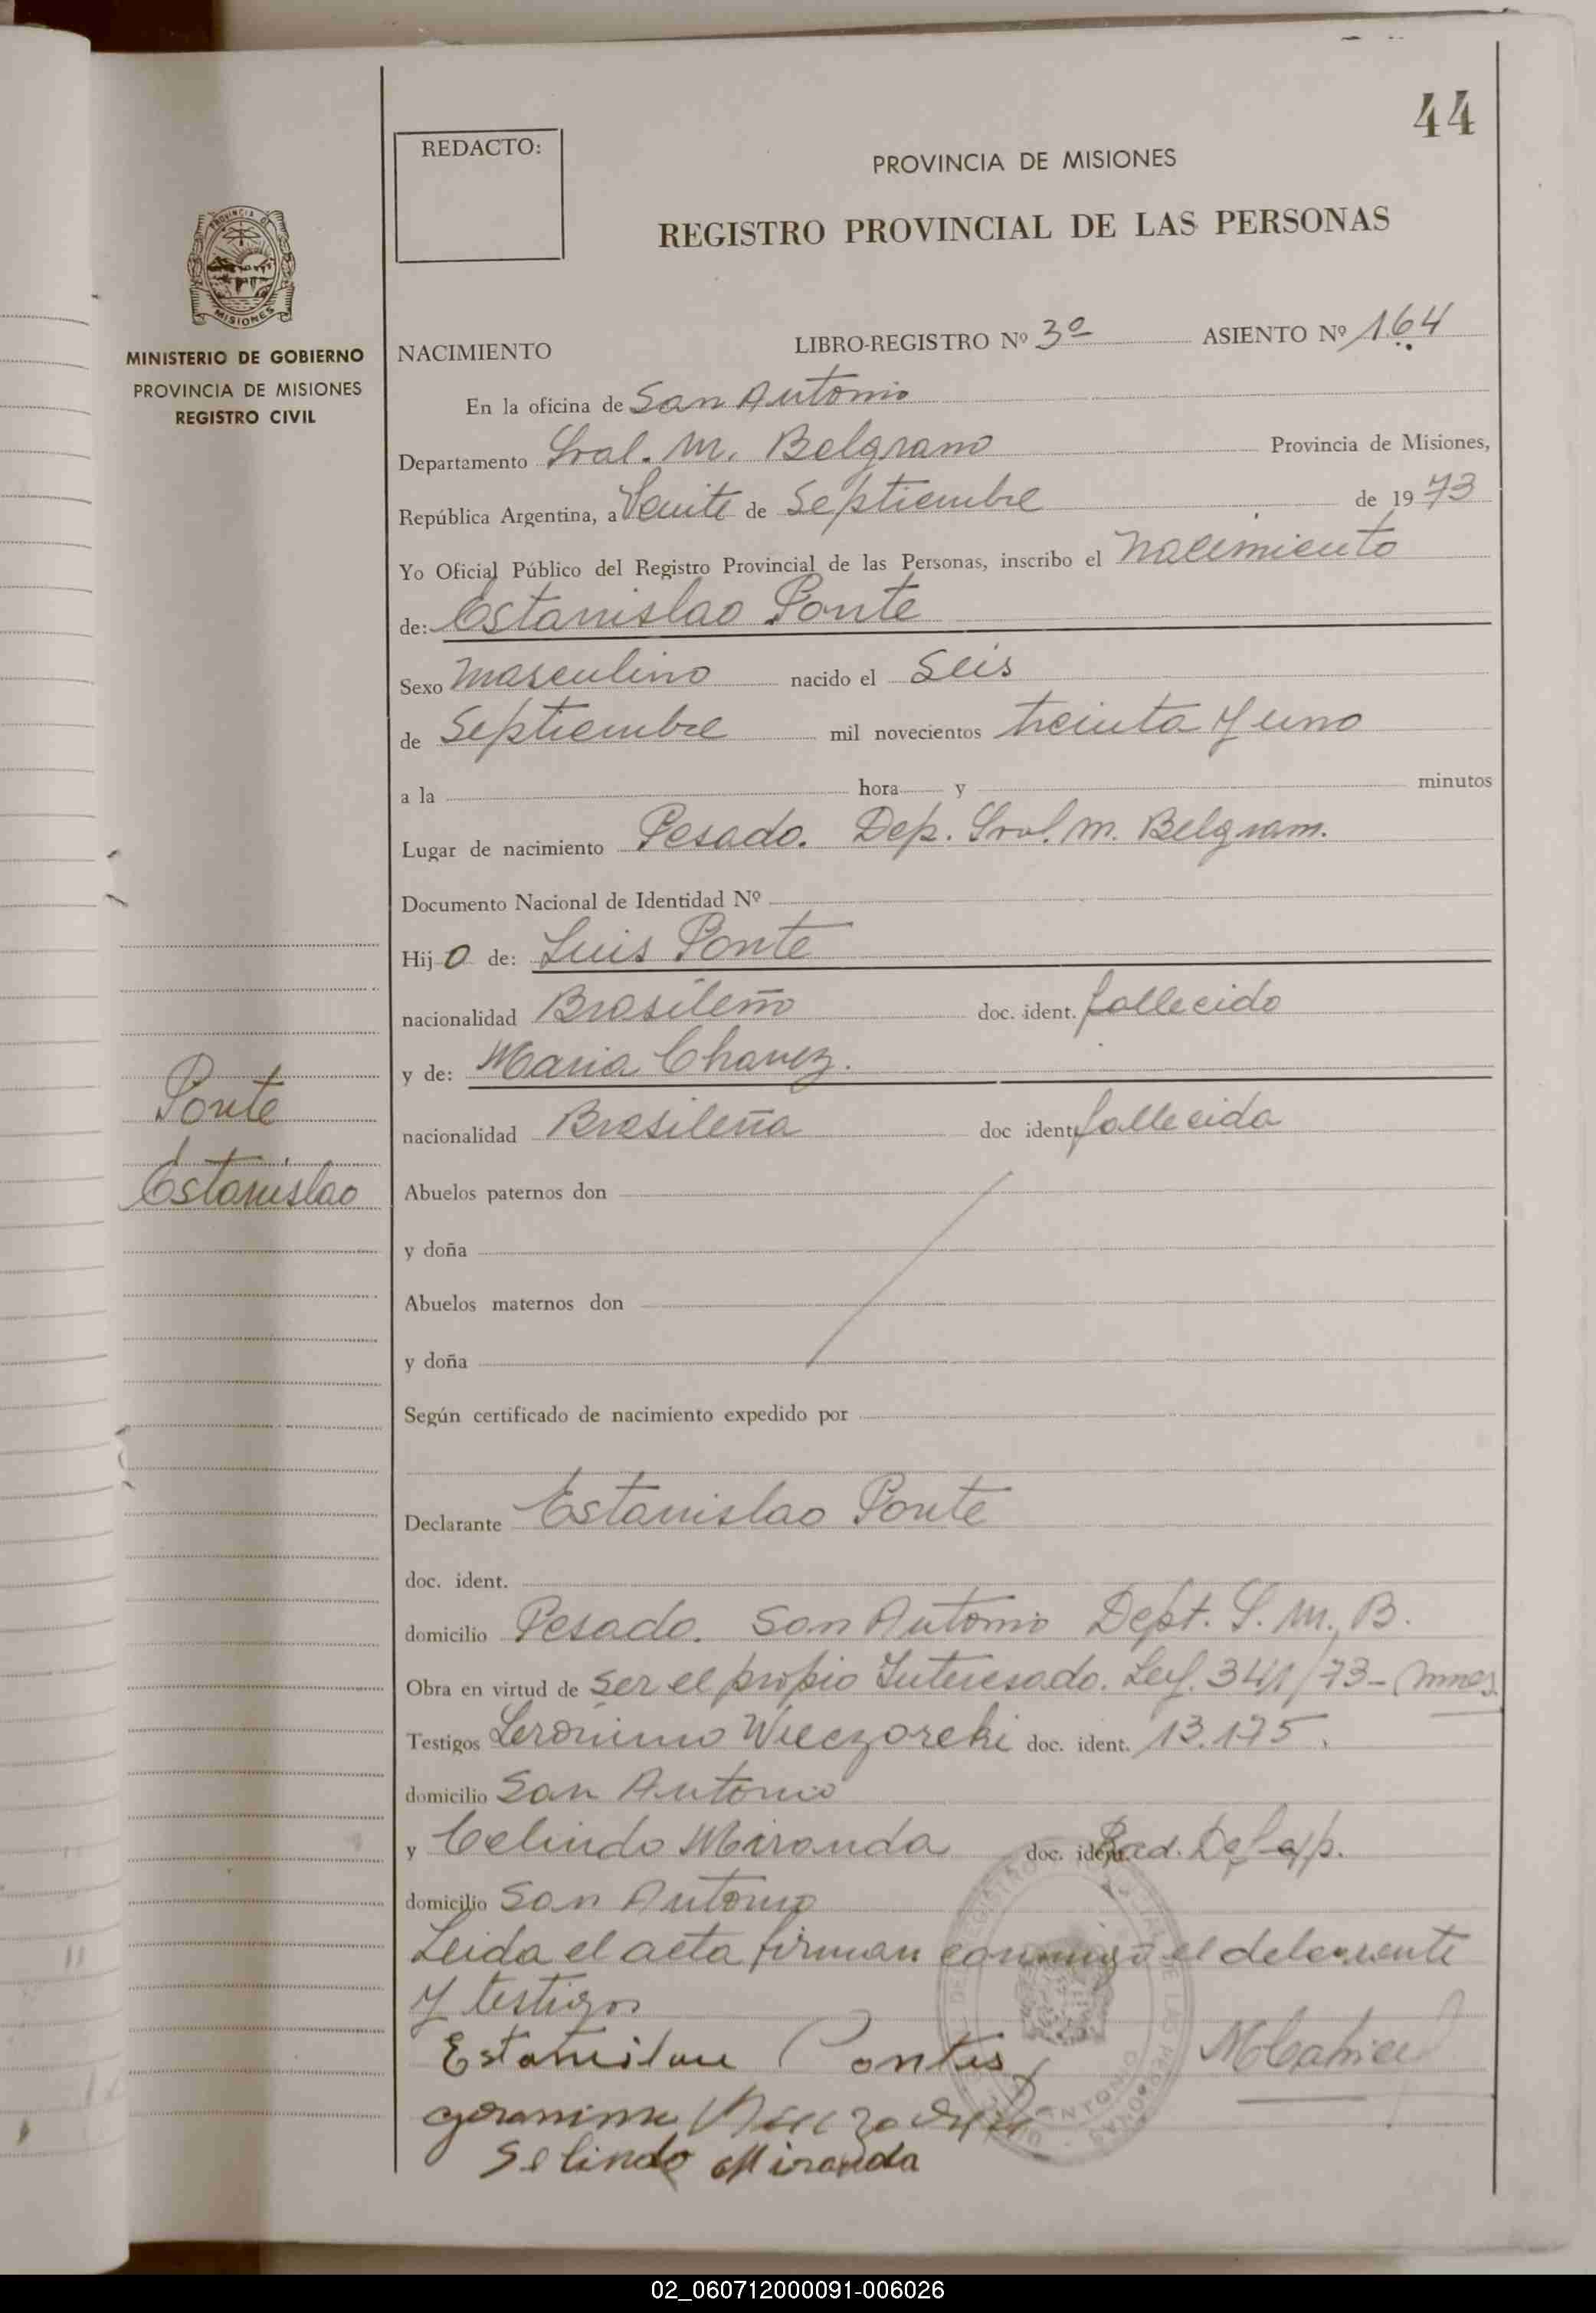 44
REDACTO:
PROVINCIA DE MISIONES
REGISTRO PROVINCIAL DE LAS PERSONAS
PROVINCIA DE
MISIONES
MINISTERIO DE GOBIERNO
PROVINCIA DE MISIONES
REGISTRO CIVIL
NACIMIENTO LIBRO-REGISTRO Nº 3º ASIENTO Nº 164
En la oficina de San Antonio
Departamento Gral. M. Belgrano Provincia de Misiones,
República Argentina, a Veinte de Septiembre de 1973
Yo Oficial Público del Registro Provincial de las Personas, inscribo el nacimiento
de: Estanislao Ponte
Sexo masculino nacido el Seis
de Septiembre mil novecientos treinta y uno
a la hora y minutos
Lugar de nacimiento Pesado. Dep. Gral. M. Belgrano.
Documento Nacional de Identidad Nº
Hijo de: Luis Ponte
nacionalidad Brasileño doc. ident. fallecido
y de: Maria Chavez.
nacionalidad Brasileña doc ident. fallecida
Ponte
Estanislao
Abuelos paternos don
y doña
Abuelos maternos don
y doña
Según certificado de nacimiento expedido por
Declarante Estanislao Ponte
doc. ident.
domicilio Pesado. San Antonio Dept. G. M. B.
Obra en virtud de ser el propio Interesado. Ley. 341/73-
Testigos Gerónimo Wieczoreki doc. ident. 13.175.
domicilio San Antonio
y Celindo Miranda doc. ident.
domicilio San Antonio
Leida el acta firman conmigo el declarante
y testigos
Ponte
Selindo Miranda
02_060712000091-006026